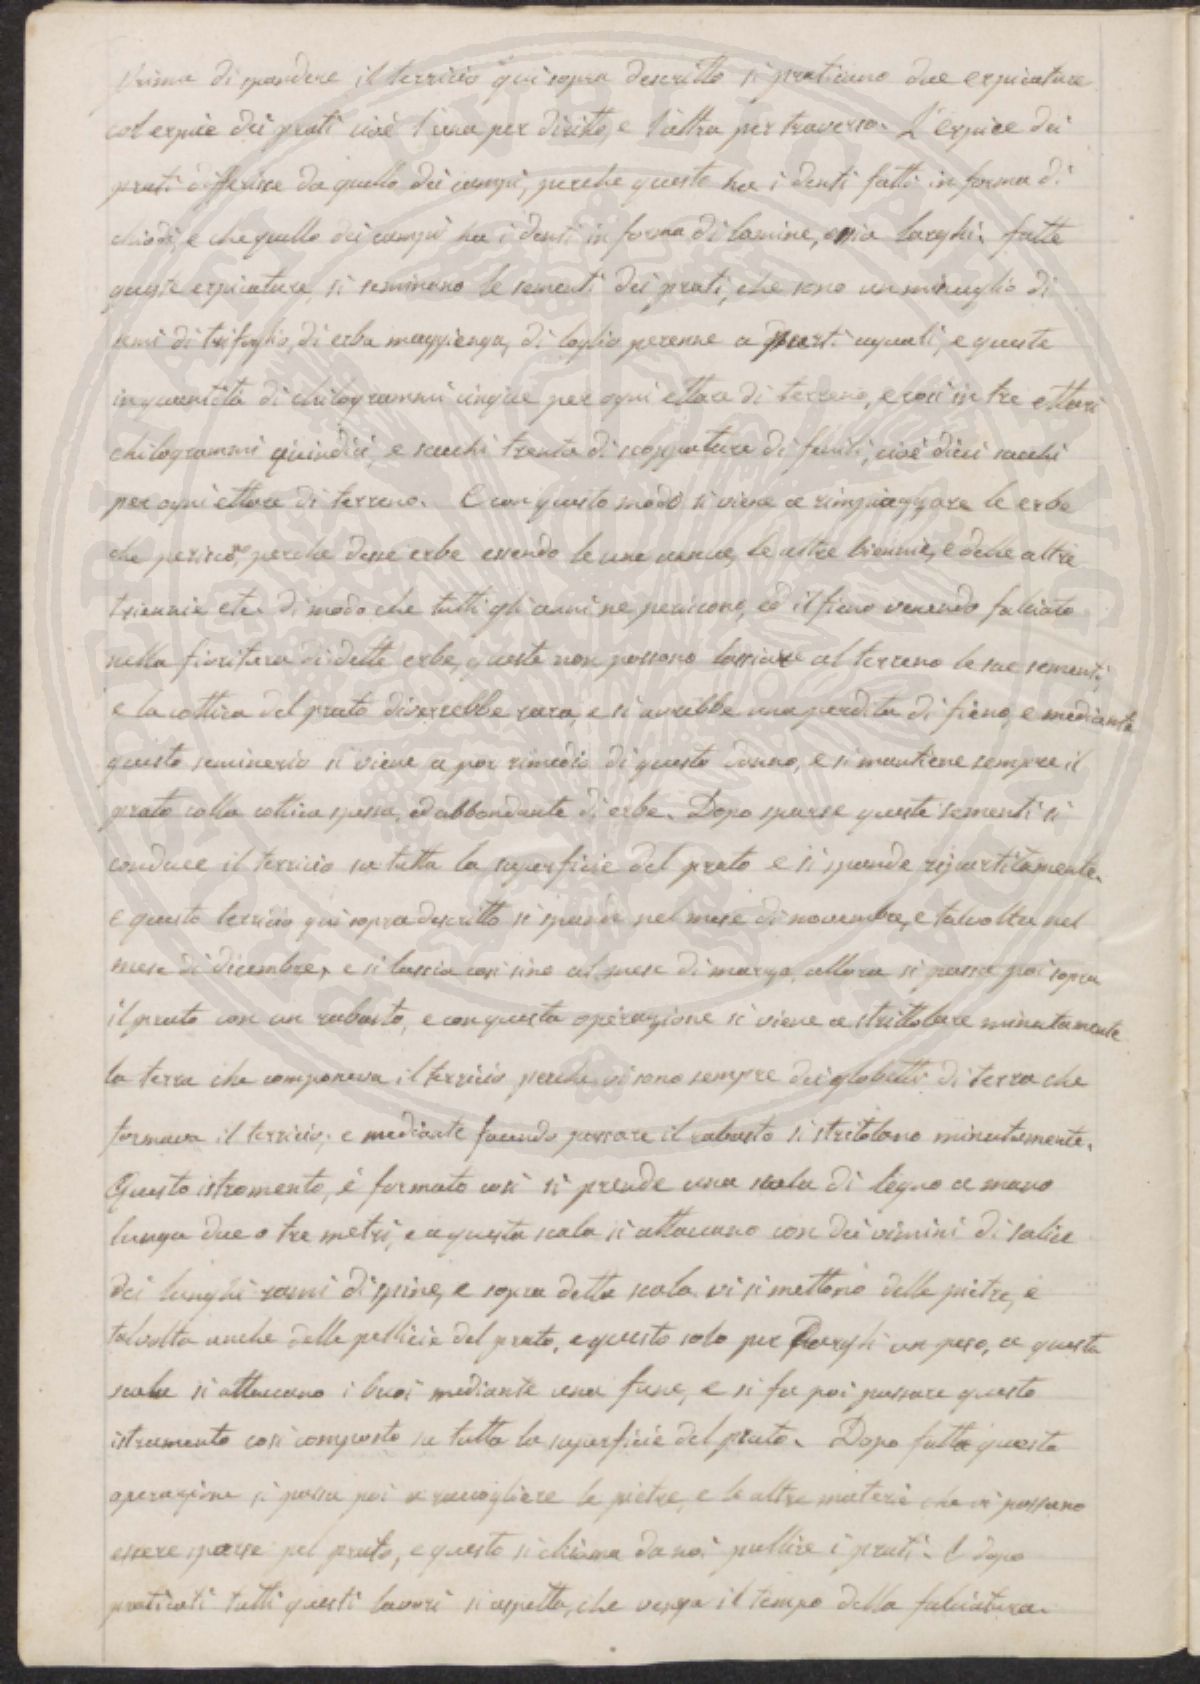 Prima di spandere il terricio qui sopra descritto si praticano due erpicature
col erpice dei prati cioè l'una per diritto, e l'altra per traverso. L'erpice dei
prati differisce da quello dei campi, perche questo ha i denti fatti in forma di
chiodi, e che quello dei campi ha i denti in forma di lamine, ossia larghi. fatte
queste erpicature, si seminano le sementi dei prati, che sono un miscuglio di
semi di trifoglio, di erba maggienga, di loglio perenne a parti uguali, e queste
in quantità di chilogrammi cinque per ogni ettare di terreno, e così in tre ettari
chilogrammi quindici, e sacchi trenta di scoppature di fienili, cioè dieci sacchi
per ogni ettare di terreno. E con questo modo si viene a rimpiaggare le erbe
che perisco, perche desse erbe essendo le une annue, le altre biennie, e delle altre
triennie etc. di modo che tutti gli anni ne periscono, ed il fieno venendo falciato
nella fioritura di dette erbe, queste non possono lassiare al terreno le sue sementi,
e la cottica del prato diverrebbe rara, e si avrebbe una perdita di fieno, e mediante
questo seminerio si viene a por rimedio di questo danno, e si mantiene sempre il
prato colla cottica spessa, ed abbondante di erbe. Dopo sparse queste sementi si
conduce il terricio su tutta la superficie del prato e si spande ripartitamente.
e questo terricio qui sopra descritto si spande nel mese di novembre, e talvolta nel
mese di dicembre, e si lascia così sino al mese di marzo, allora si passa poi sopra
il prato con un rabasto, e con questa operazione si viene a strittolare minutamente
la terra che componeva il terricio perche vi sono sempre dei globetti di terra che
formava il terricio, e mediante facendo passare il rabasto si stritolano minutamente.
Questo istromento, è formato così si prende una scala di legno a mano
lunga due o tre metri, e a questa scala si attaccano con dei vimini di salice
dei lunghi rami di spine, e sopra detta scala vi si mettono delle pietre, e
talvolta anche delle pellicie del prato, e questo solo per dargli un peso, a questa
scala si attaccano i buoi mediante una fune, e si fa poi passare questo
istrumento così composto su tutta la superficie del prato. Dopo fatta questa
operazione si passa poi a raccogliere le pietre, e le altre materie che vi possano
essere sparse pel prato, e questo si chiama da noi pullire i prati. E dopo
praticati tutti questi lavori si aspetta, che venga il tempo della falciatura.